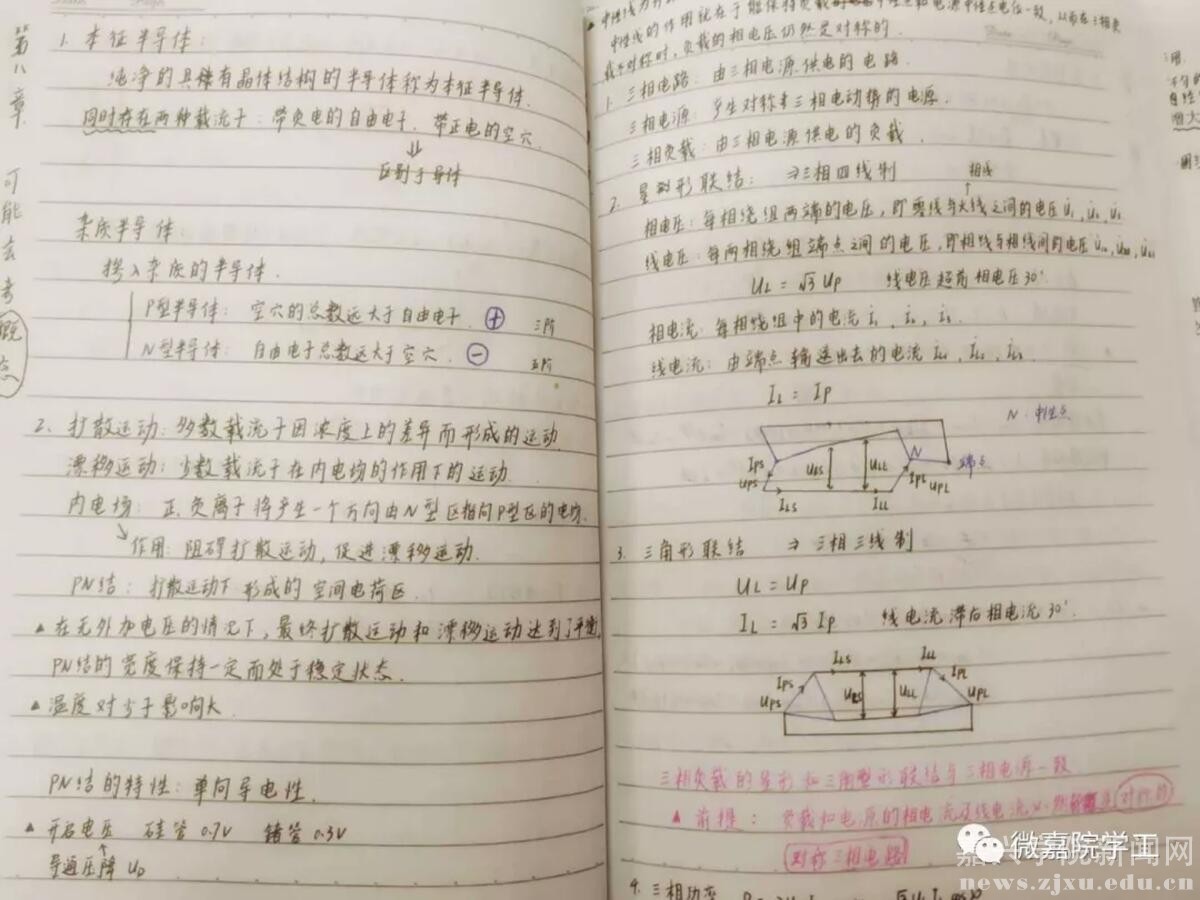 第八章 可能去考概念
1. 本征半导体：
纯净的具有晶体结构的半导体称为本征半导体.
同时存在两种载流子：带负电的自由电子. 带正电的空穴.
区别于导体
杂质半导体
掺入杂质的半导体.
P型半导体： 空穴的总数远大于自由电子. + 三阶
N型半导体： 自由电子总数远大于空穴. - 五阶
2. 扩散运动：多数载流子因浓度上的差异而形成的运动.
漂移运动：少数载流子在内电场的作用下的运动.
内电场： 正.负离子将产生一个方向由N型区指向P型区的电场.
作用：阻碍扩散运动，促进漂移运动.
PN结：扩散运动下形成的空间电荷区.
▲ 在无外加电压的情况下，最终扩散运动和漂移运动达到了平衡,
PN结的宽度保持一定而处于稳定状态.
▲ 温度对少子影响大.
PN结的特性：单向导电性.
▲ 开启电压 硅管 0.7V 锗管 0.3V
导通压降 UD
中性线的作用就在于能保持负载中性点和电源中性点电位一致，从而在三相负
载不对称时，负载的相电压仍然是对称的.
1. 三相电路：由三相电源供电的电路.
三相电源：产生对称三相电动势的电源.
三相负载：由三相电源供电的负载.
2. 星形联结： ⇒三相四线制 相线
相电压：每相绕组两端的电压，即零线与火线之间的电压
线电压：每两相绕组端点之间的电压，即相线与相线间的电压
UL = √3 UP 线电压超前相电压30°
相电流：每相绕组中的电流 i1, i2, i3.
线电流：由端点输送出去的电流
IL = IP
N：中性点
N
端点
IPS
UPS
ULS
ULL
IPL
UPL
ILS
ILL
3. 三角形联结 ⇒ 三相三线制
UL = UP
IL = √3 IP 线电流滞后相电流30°.
ILS
ILL
IPS
UPS
ULS
ULL
IPL
UPL
三相负载的星形和三角形联结与三相电源一致
▲ 前提： 负载和电源的相电流及线电流 对称的
对称三相电路
4. 三相功率
微嘉院学工
嘉兴学院新闻网
news.zjxu.edu.cn